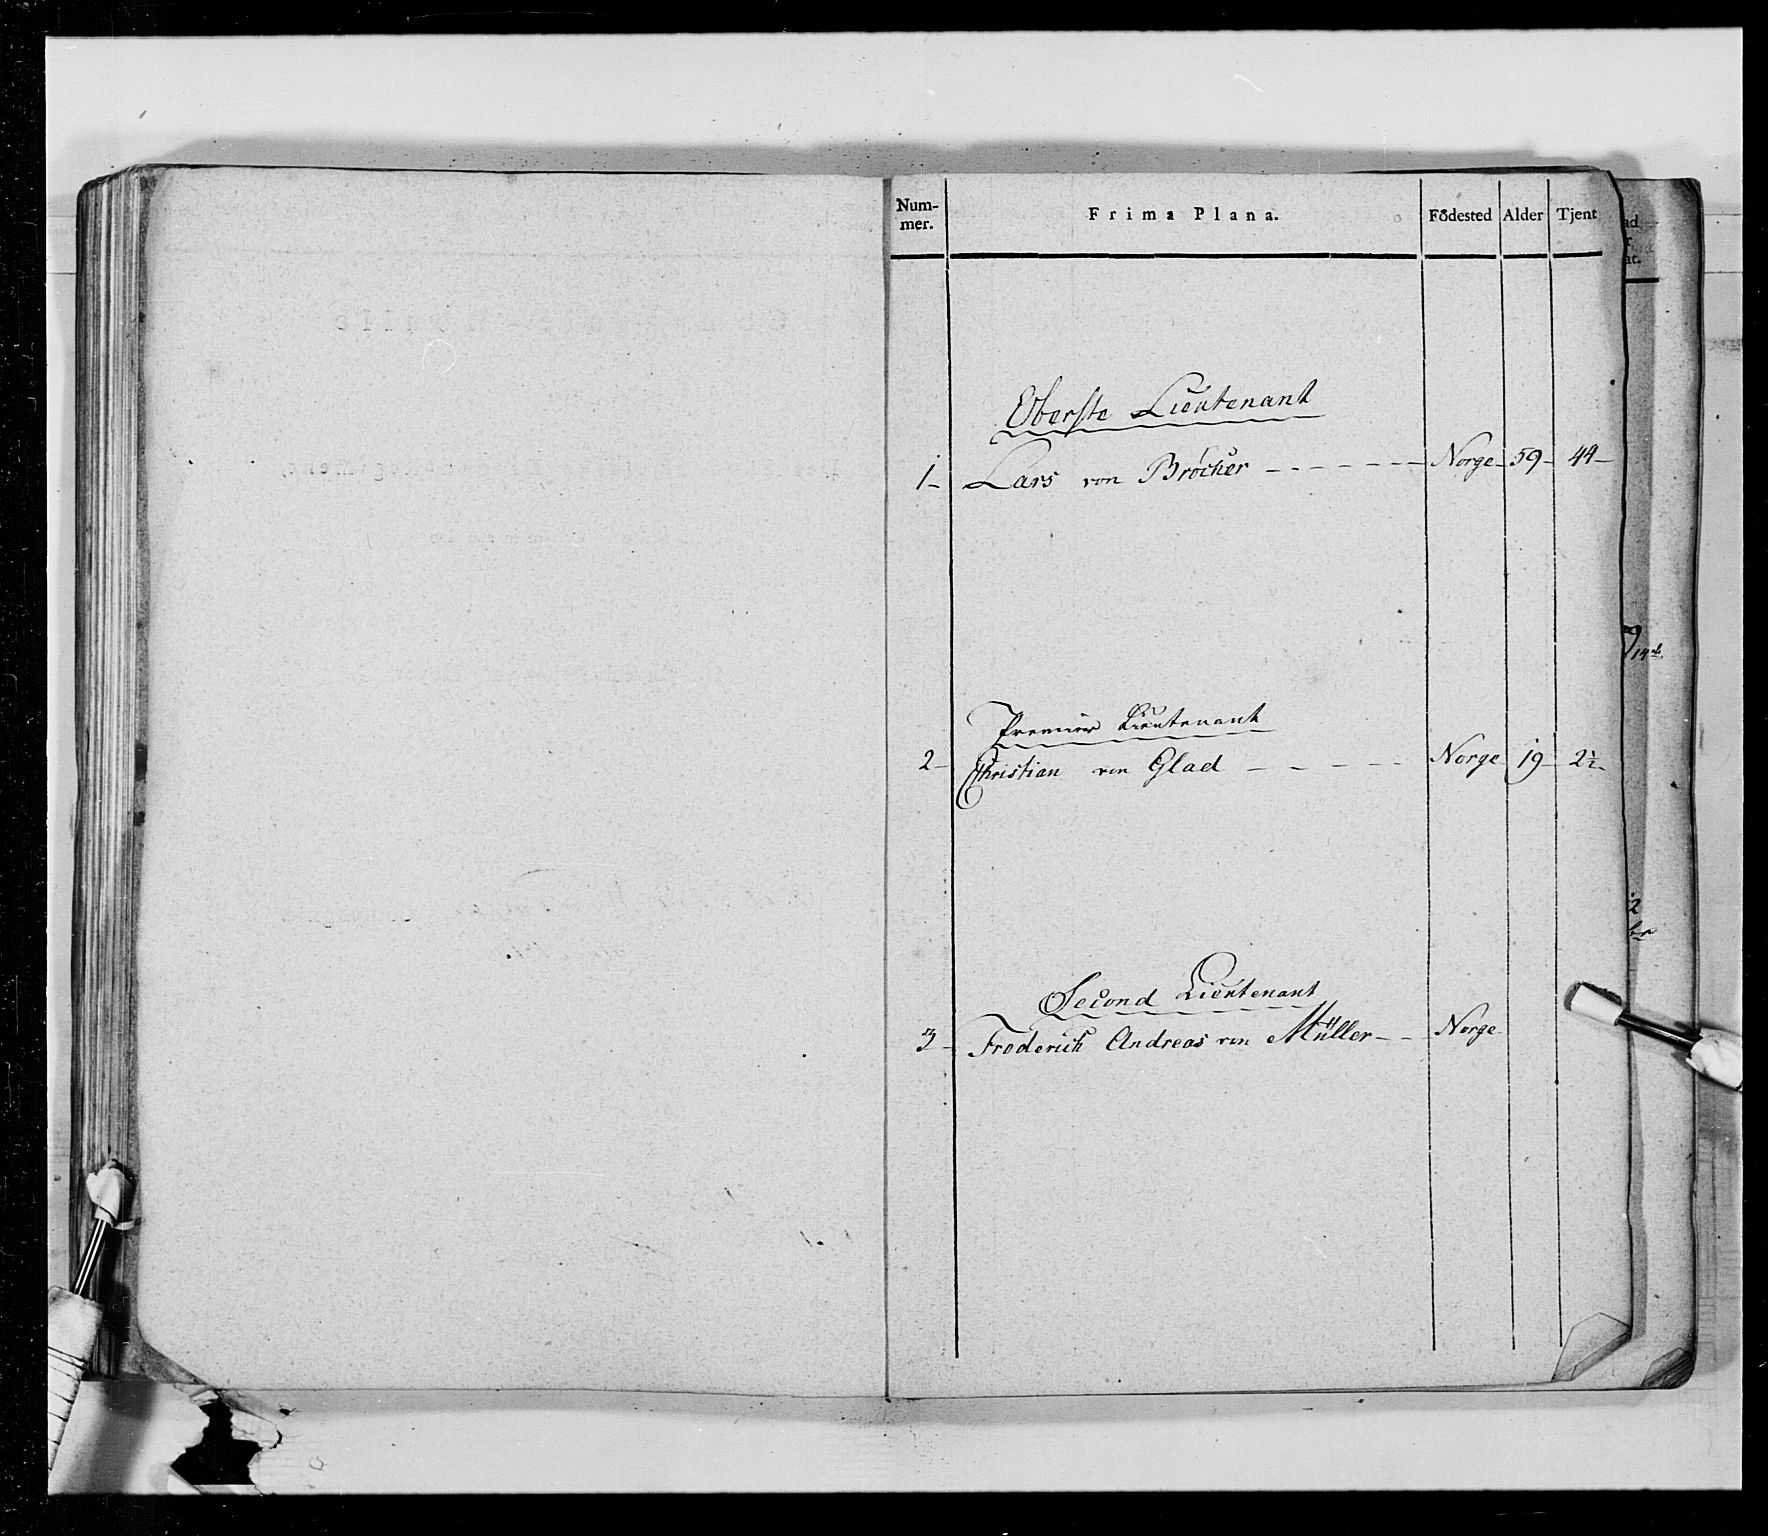 Num-
mer.
Frima Plana.
Födested
Alder
Tjent
Oberste Lieutenant
1- Lars von Bröcher - - - - - - - Norge - 59 - 44 -
Premier Lieutenant
2- Christian von Glad - - - - - Norge 19 - 2½
Second Lieutenant
3- Frederich Andreas von Müller - - - Norge